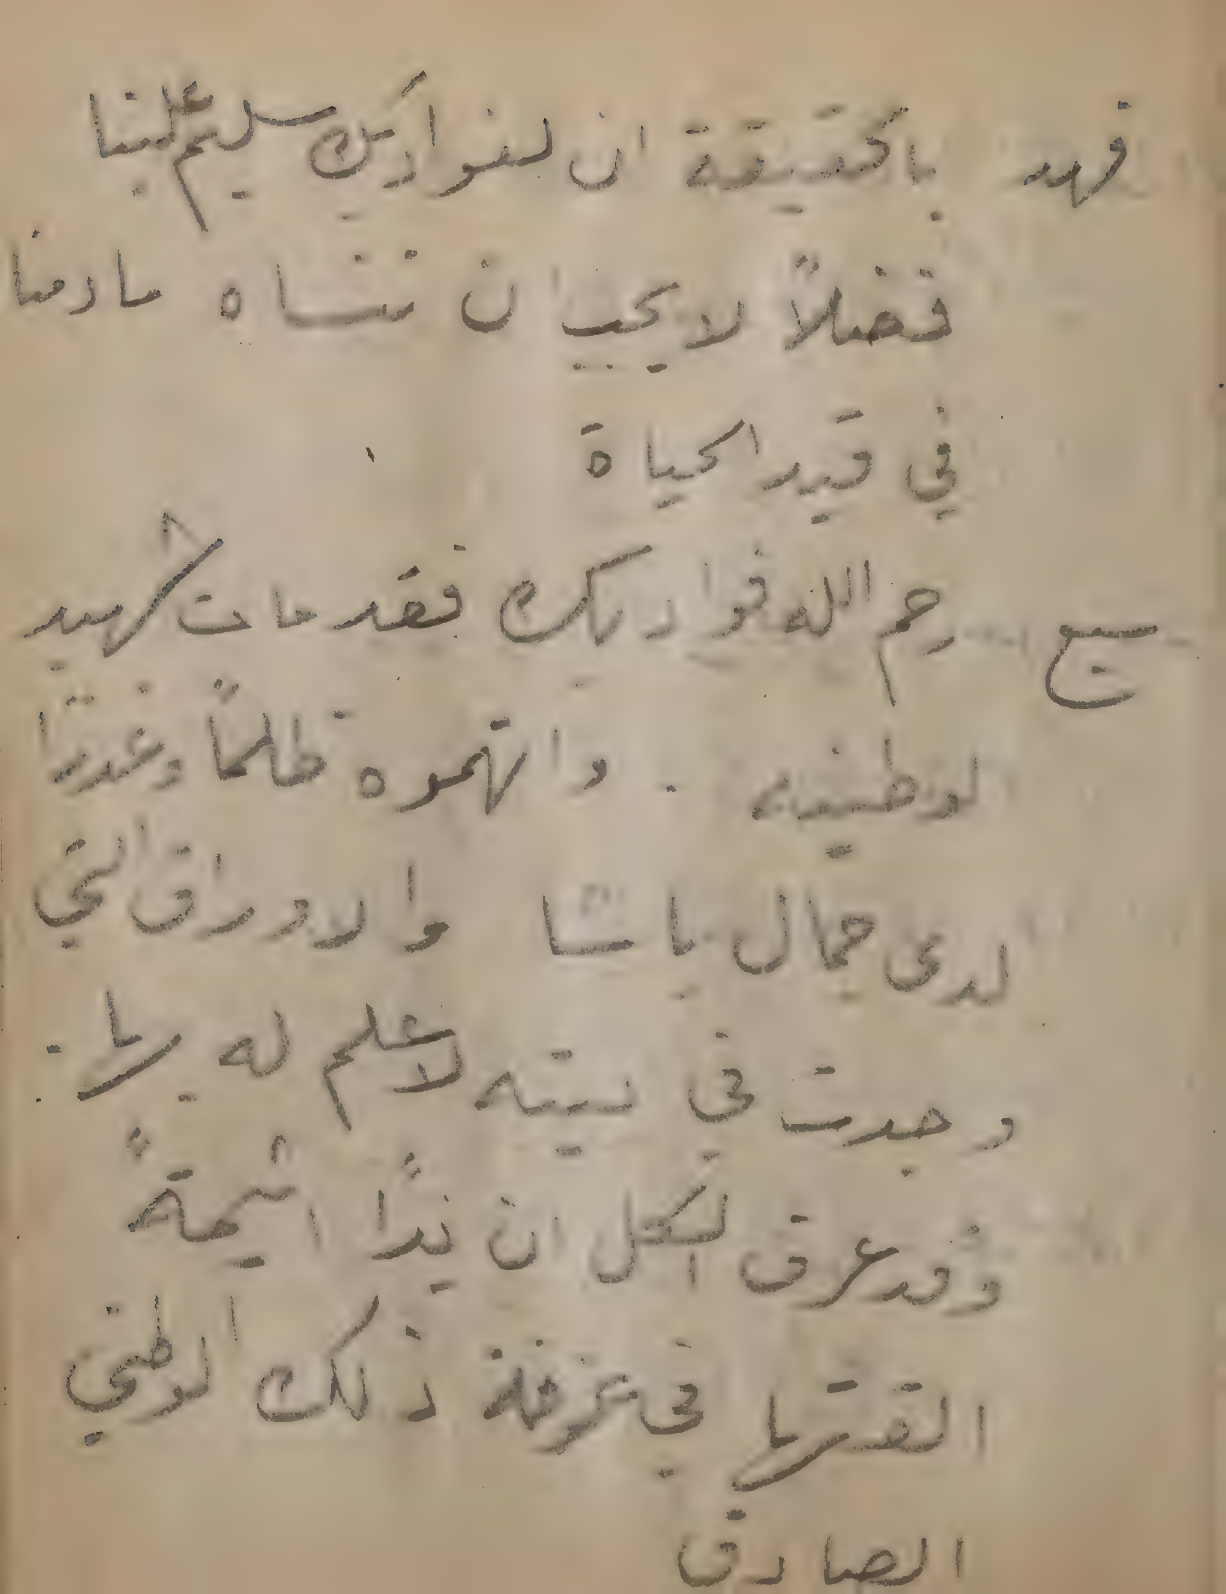 فهد بالحقيقة ان لفواد بك سليم علينا
فضلاً لا يجب ان ننساه ما دمنا
في قيد الحياة
سبع رحم الله فواد بك فقد مات شهيد
لوطنيه . واتهموه ظلماً وغدرًا
لدى جمال باشا والاوراق التي
وجدت في بيته لا علم له بها .
وقد عرف الكل ان يدًا اثيمةً
القتها في غرفة ذلك الوطني
الصادق